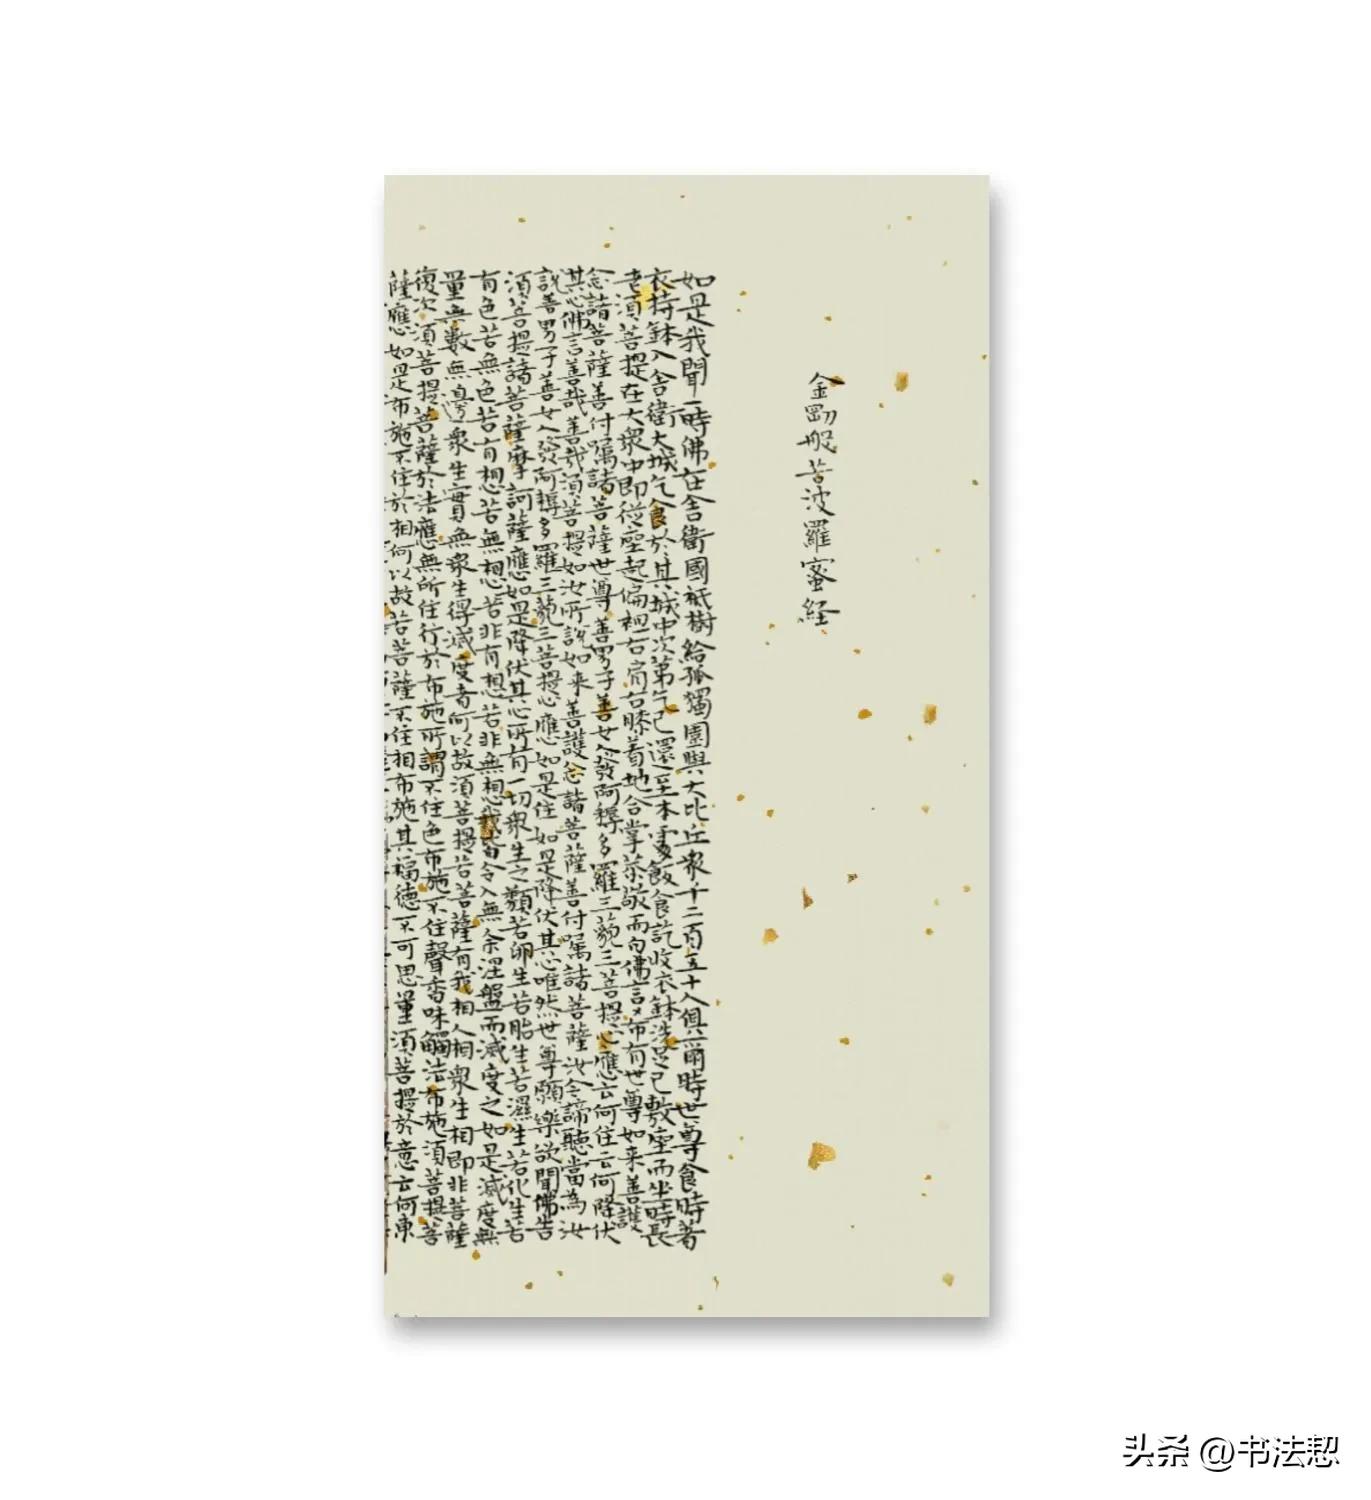 金剛般若波羅蜜経
如是我聞一時佛在舍衛國祇樹給孤獨園與大比丘衆千二百五十人俱爾時世尊食時著
衣持鉢入舍衛大城乞食於其城中次第乞已還至本處飯食訖收衣鉢洗足已敷座而坐時長
老須菩提在大衆中即從座起偏袒右肩右膝着地合掌恭敬而向佛言希有世尊如来善護
念諸菩薩善付囑諸菩薩世尊善男子善女人發阿耨多羅三藐三菩提心應云何住云何降伏
其心佛言善哉善哉須菩提如汝所說如来善護念諸菩薩善付囑諸菩薩汝今諦聽當為汝
說善男子善女人發阿耨多羅三藐三菩提心應如是住如是降伏其心唯然世尊願樂欲聞佛告
須菩提諸菩薩摩訶薩應如是降伏其心所有一切衆生之類若卵生若胎生若濕生若化生若
有色若無色若有想若無想若非有想若非無想我皆令入無余涅盤而滅度之如是滅度無
量無數無邊衆生實無衆生得滅度者何以故須菩提若菩薩有我相人相衆生相即非菩薩
復次須菩提菩薩於法應無所住行於布施所謂不住色布施不住聲香味觸法布施須菩提菩
薩應如是布施不住於相何以故若菩薩不住相布施其福德不可思量須菩提於意云何東
头条 @书法恝